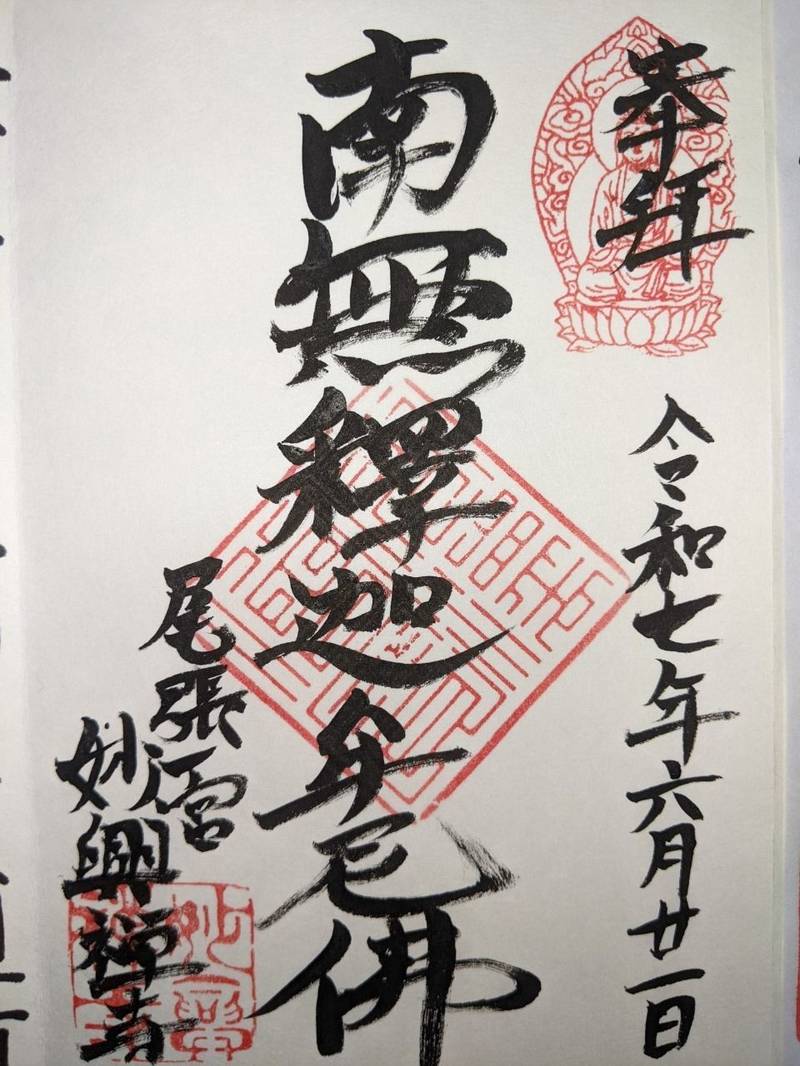 奉拝
令和七年六月廿一日
南無釋迦牟尼佛
尾張一宮
妙興禅寺